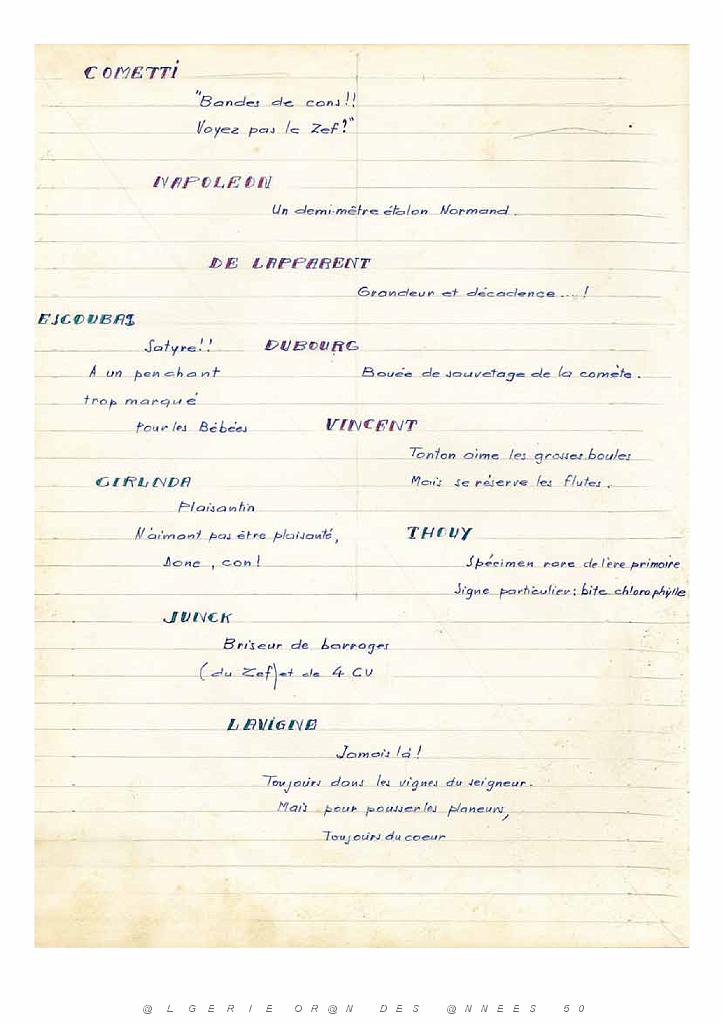 COMETTI
"Bandes de cons!!
Voyez pas le Zef?"
NAPOLEON
Un demi-mètre étalon Normand.
DE LAPPARENT
Grandeur et décadence....!
ESCOUBAS
Satyre!!
A un penchant
trop marqué
Pour les Bébées
DUBOURG
Bouée de sauvetage de la comète.
VINCENT
Tonton aime les grosses boules
Mais se réserve les flutes.
GIRLANDA
Plaisantin
N'aimant pas être plaisanté,
Donc, con!
THOUY
Spécimen rare de l'ère primaire
Signe particulier: bite chlorophylle
JUNCK
Briseur de barrages
(du Zef) et de 4 CV
LAVIGNE
Jamais là!
Toujours dans les vignes du seigneur.
Mais pour pousser les planeurs,
Toujours du coeur
@LGERIE OR@N DES @NNEES 50